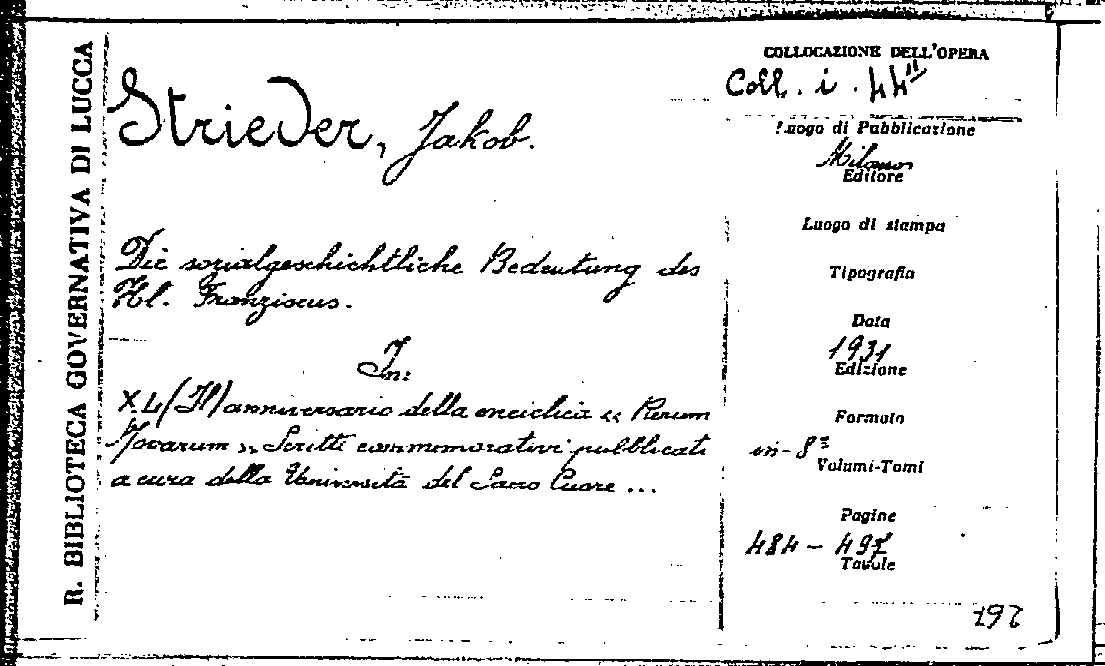 R. BIBLIOTECA GOVERNATIVA DI LUCCA
Strieder, Jakob.
Die sozialgeschichtliche Bedeutung des
Hl. Franziscus.
In:
XL (Il) anniversario della enciclica « Rerum
Novarum » Scritti commemorativi pubblicati
a cura della Università del Sacro Cuore ...
COLLOCAZIONE DELL'OPERA
Coll. i. 44"
Luogo di Pubblicazione
Milano
Editore
Luogo di stampa
Tipografia
Data
1931
Edizione
Formato
in-8º
Volumi-Tomi
Pagine
484 - 497
Tavole